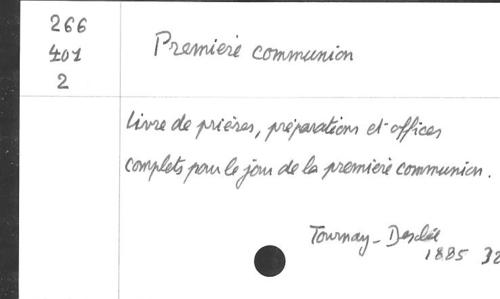 266
401
2
Première communion
Livre de prières, préparations et offices
complets pour le jour de la première communion.
Tournay - Desclée
1885 32